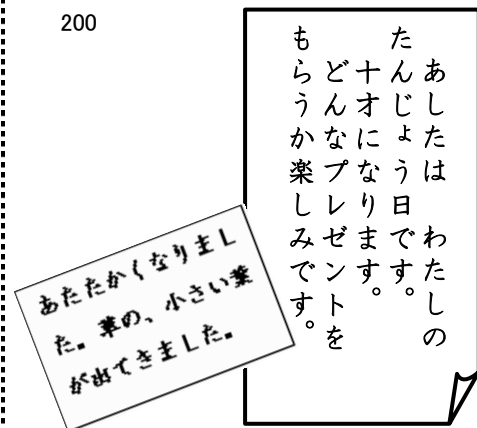 200
あしたは　わたしの
たんじょう日です。
十才になります。
どんなプレゼントを
もらうか楽しみです。
あたたかくなりまし
た。草の、小さい葉
が出てきました。